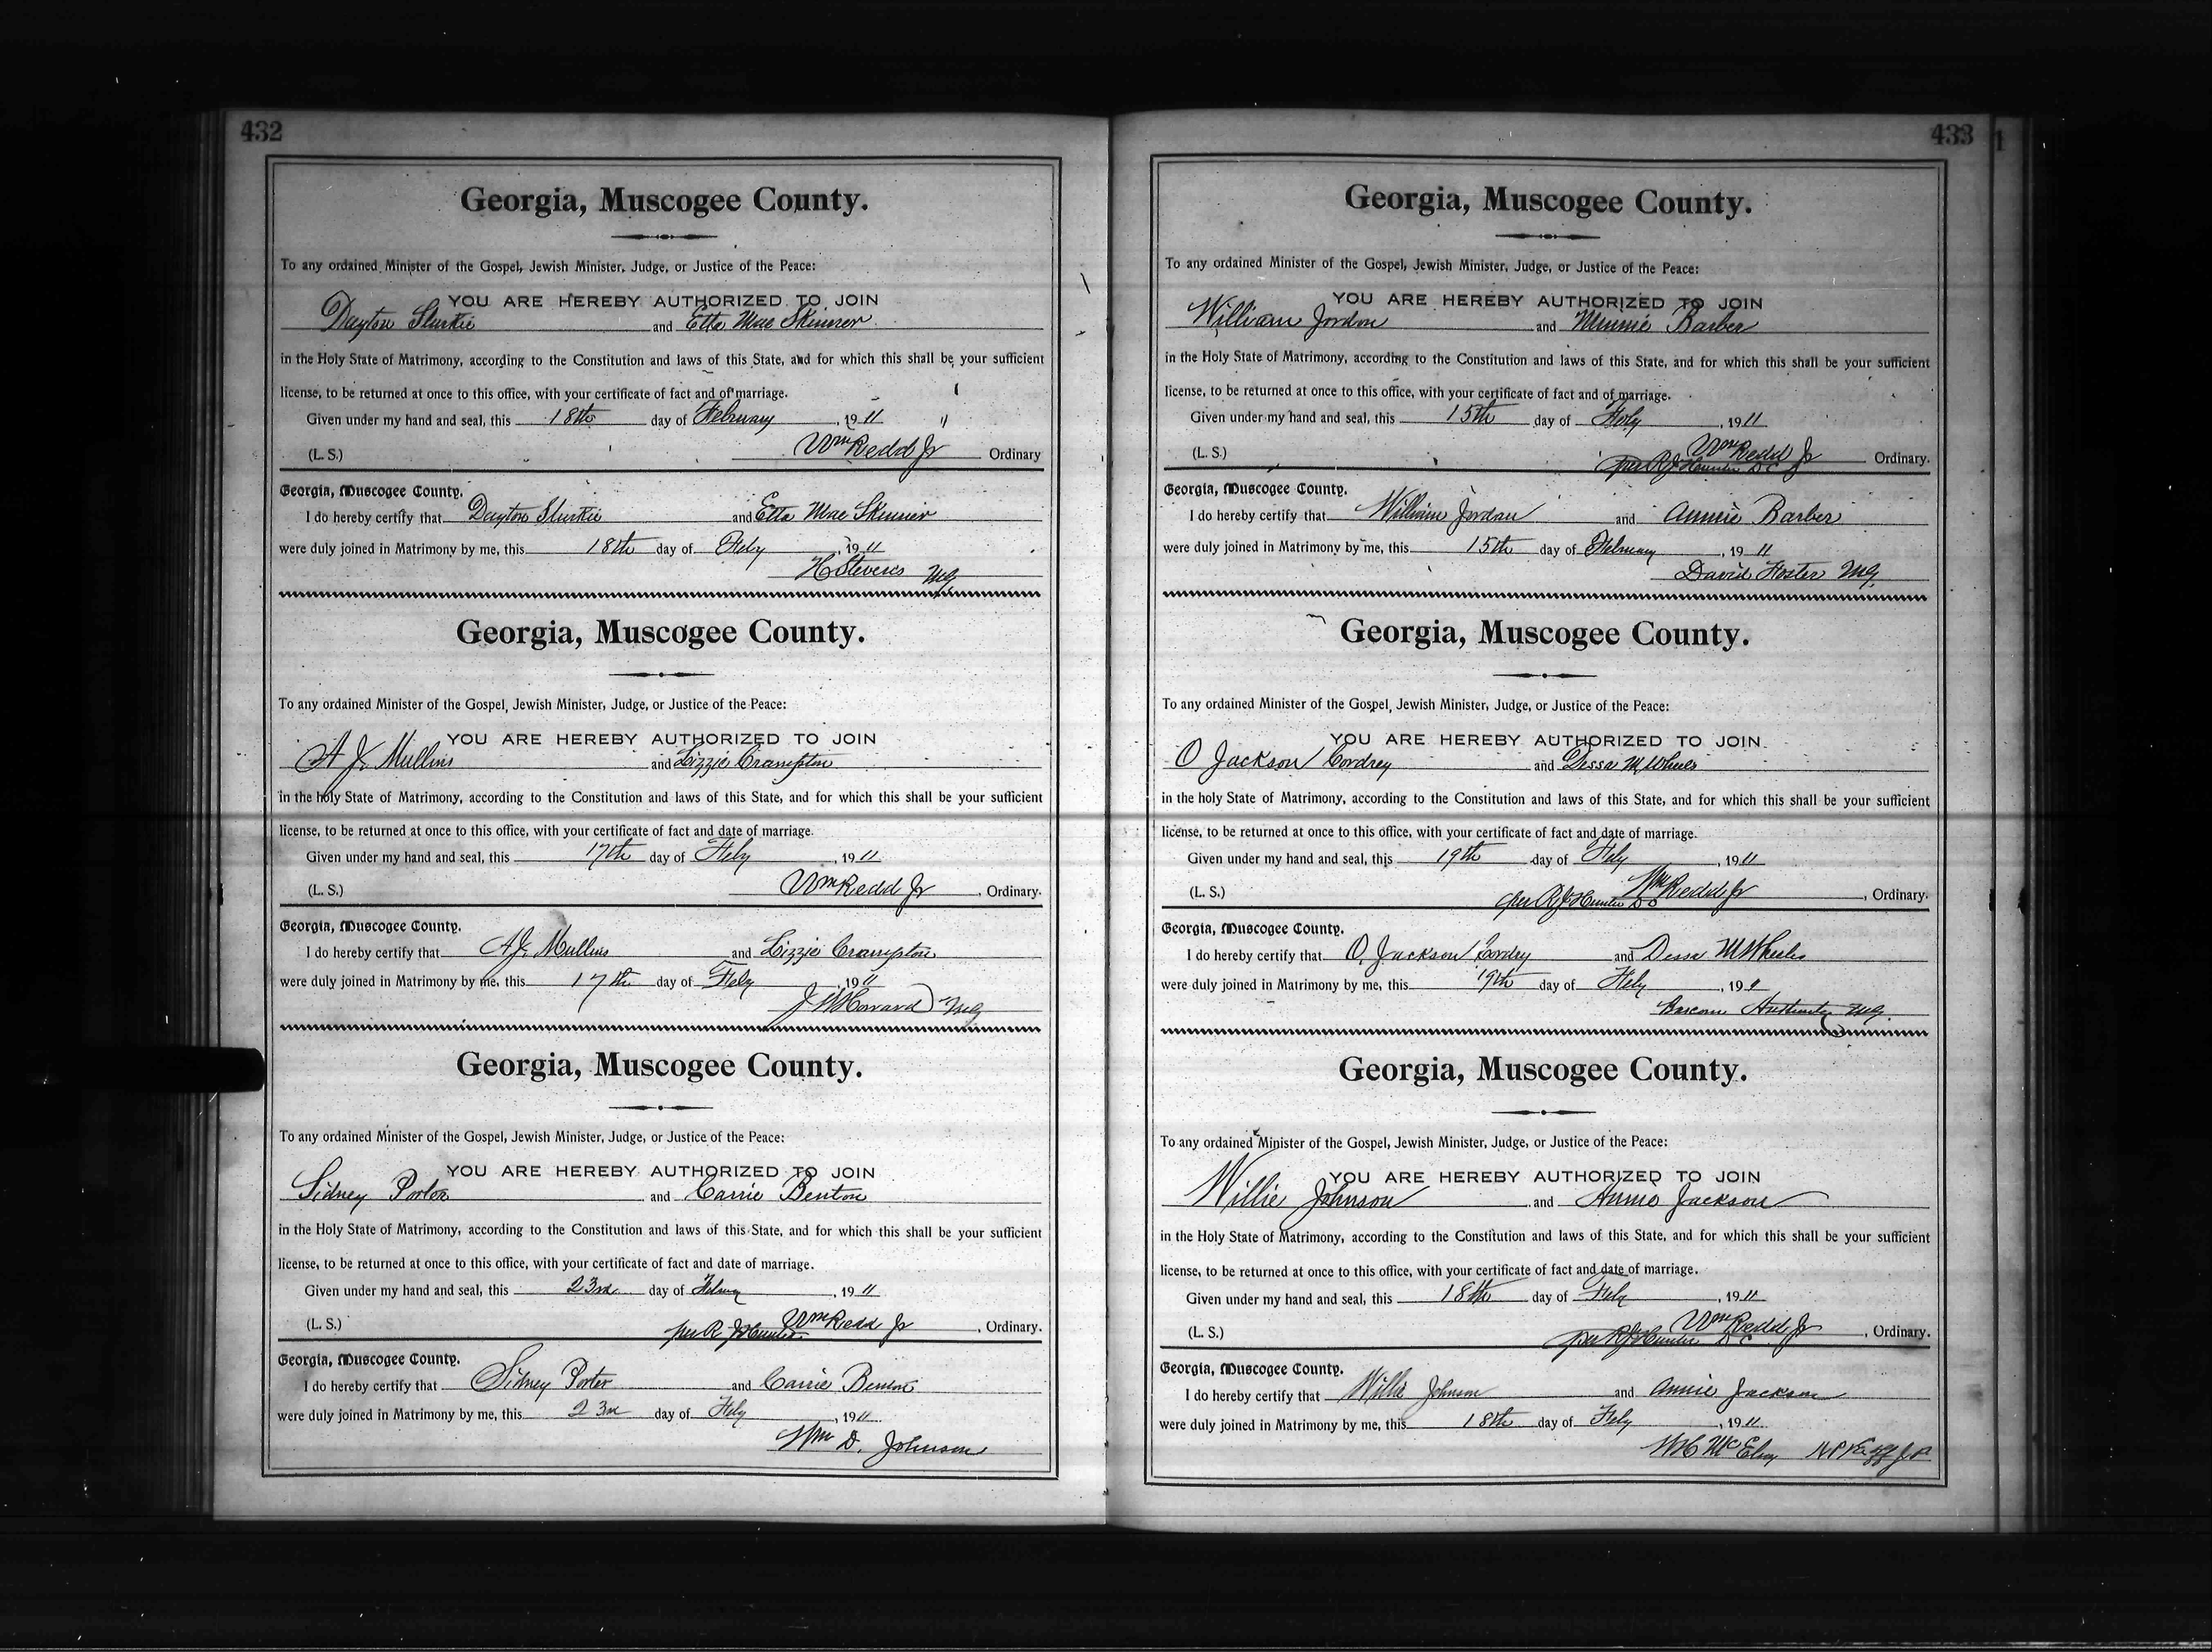 432
Georgia, Muscogee County.
To any ordained Minister of the Gospel, Jewish Minister, Judge, or Justice of the Peace:
YOU ARE HEREBY AUTHORIZED TO JOIN
Dayton Sturkie and Etta Mae Skinner
in the Holy State of Matrimony, according to the Constitution and laws of this State, and for which this shall be your sufficient
license, to be returned at once to this office, with your certificate of fact and of marriage.
Given under my hand and seal, this 18th day of February, 1911
(L. S.) Wm Redd Jr Ordinary
Georgia, Muscogee County.
I do hereby certify that Dayton Sturkie and Etta Mae Skinner
were duly joined in Matrimony by me, this 18th day of Feby, 1911
H Stevens MG
Georgia, Muscogee County.
To any ordained Minister of the Gospel, Jewish Minister, Judge, or Justice of the Peace:
YOU ARE HEREBY AUTHORIZED TO JOIN
A J Mullins and Lizzie Crampton
in the holy State of Matrimony, according to the Constitution and laws of this State, and for which this shall be your sufficient
license, to be returned at once to this office, with your certificate of fact and date of marriage.
Given under my hand and seal, this 17th day of Feby, 1911
(L. S.) Wm Redd Jr, Ordinary.
Georgia, Muscogee County.
I do hereby certify that A J Mullins and Lizzie Crampton
were duly joined in Matrimony by me, this 17th day of Feby, 1911
J W Howard MG
Georgia, Muscogee County.
To any ordained Minister of the Gospel, Jewish Minister, Judge, or Justice of the Peace:
YOU ARE HEREBY AUTHORIZED TO JOIN
Sidney Porter and Carrie Benton
in the Holy State of Matrimony, according to the Constitution and laws of this State, and for which this shall be your sufficient
license, to be returned at once to this office, with your certificate of fact and date of marriage.
Given under my hand and seal, this 23rd day of Februay, 1911
(L. S.) Wm Redd Jr, Ordinary.
per R J Hunter
Georgia, Muscogee County.
I do hereby certify that Sidney Porter and Carrie Benton
were duly joined in Matrimony by me, this 23rd day of Feby, 1911
Wm D. Johnson
433
Georgia, Muscogee County.
To any ordained Minister of the Gospel, Jewish Minister, Judge, or Justice of the Peace:
YOU ARE HEREBY AUTHORIZED TO JOIN
William Jordon and Minnie Barber
in the Holy State of Matrimony, according to the Constitution and laws of this State, and for which this shall be your sufficient
license, to be returned at once to this office, with your certificate of fact and of marriage.
Given under my hand and seal, this 15th day of Feby, 1911
(L. S.) Wm Redd Jr Ordinary.
per R J Hunter D C
Georgia, Muscogee County.
I do hereby certify that William Jordan and Annie Barber
were duly joined in Matrimony by me, this 15th day of February, 1911
David Foster MG
Georgia, Muscogee County.
To any ordained Minister of the Gospel, Jewish Minister, Judge, or Justice of the Peace:
YOU ARE HEREBY AUTHORIZED TO JOIN
O Jackson Cordrey and Dessa M Wheels
in the holy State of Matrimony, according to the Constitution and laws of this State, and for which this shall be your sufficient
license, to be returned at once to this office, with your certificate of fact and date of marriage.
Given under my hand and seal, this 19th day of Feby, 1911
(L. S.) Wm Redd Jr, Ordinary.
per R J Hunter D C
Georgia, Muscogee County.
I do hereby certify that O. Jackson Cordry and Dessa M Wheeles
were duly joined in Matrimony by me, this 19th day of Feby, 191
Bascom MG
Georgia, Muscogee County.
To any ordained Minister of the Gospel, Jewish Minister, Judge, or Justice of the Peace:
YOU ARE HEREBY AUTHORIZED TO JOIN
Willie Johnson and Annie Jackson
in the Holy State of Matrimony, according to the Constitution and laws of this State, and for which this shall be your sufficient
license, to be returned at once to this office, with your certificate of fact and date of marriage.
Given under my hand and seal, this 18th day of Feby, 1911
(L. S.) Wm Redd Jr, Ordinary.
per R J Hunter D C
Georgia, Muscogee County.
I do hereby certify that Willie Johnson and Annie Jackson
were duly joined in Matrimony by me, this 18th day of Feby, 1911
W C McElroy